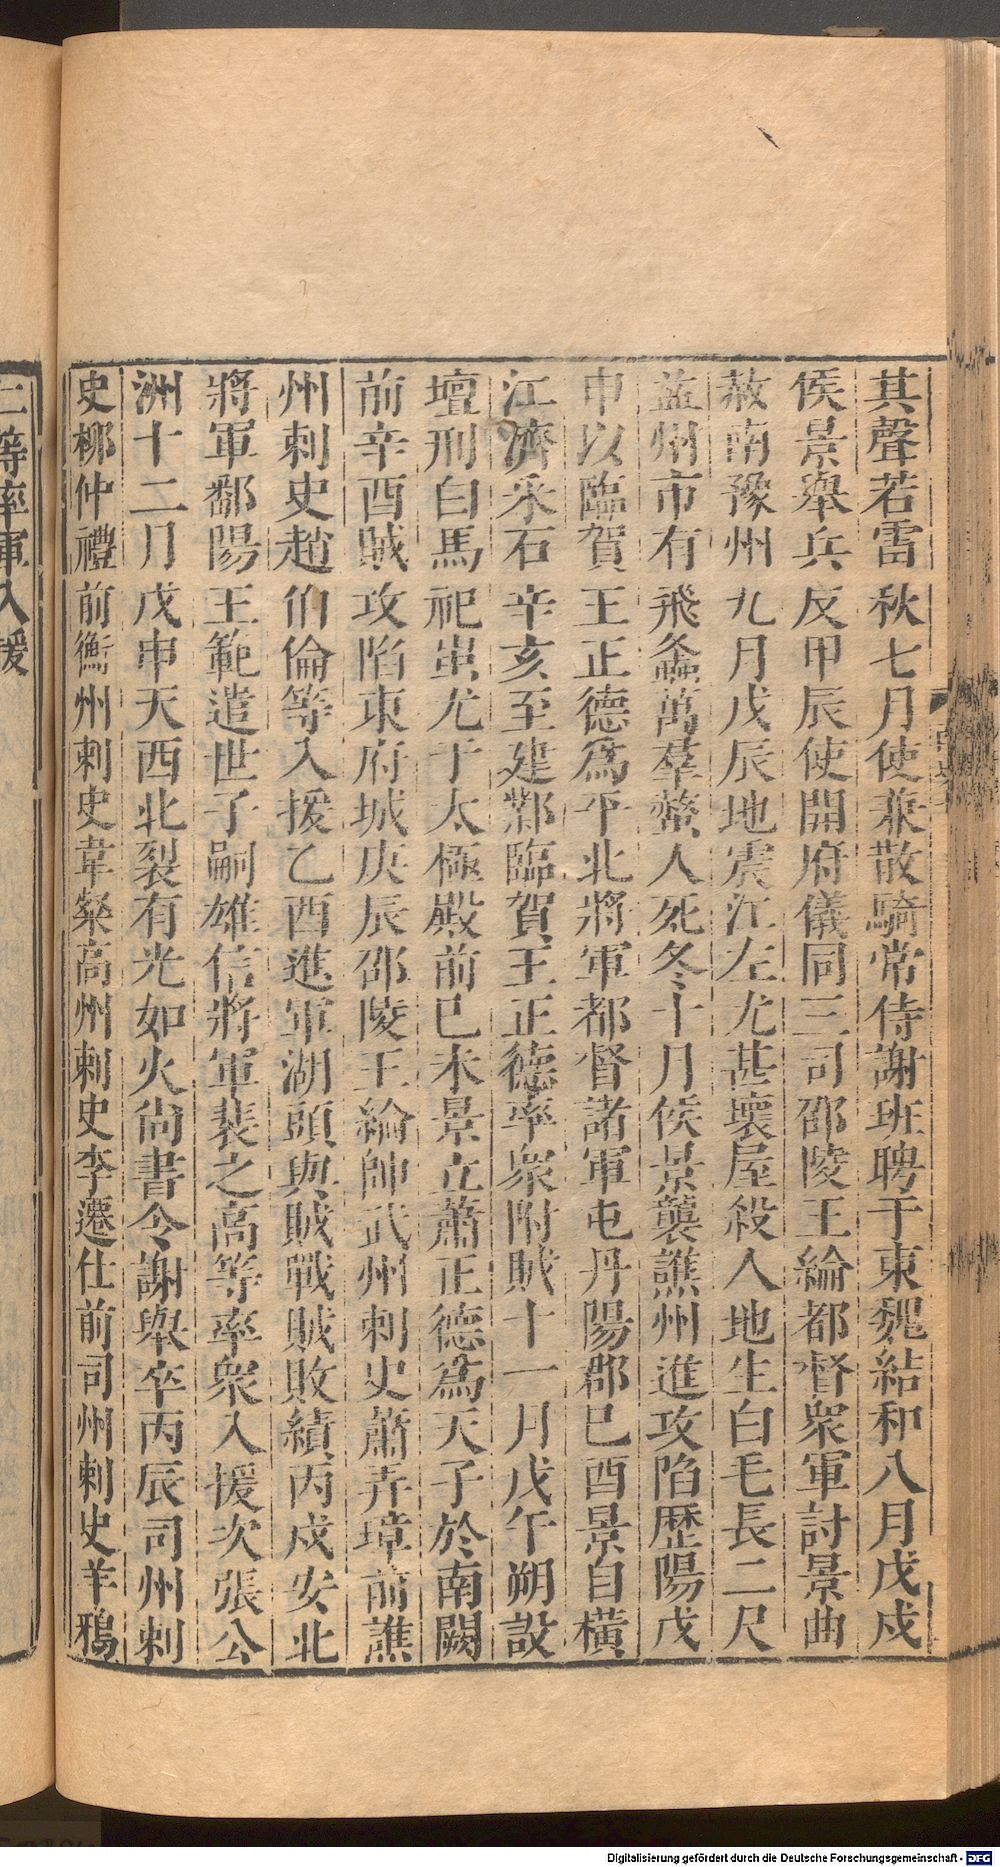 其聲若雷秋七月使兼散騎常侍謝班聘于東魏結和八月戊戍
侯景舉兵反甲辰使開府儀同三司邵陵王綸都督衆軍討景曲
赦南豫州九月戊辰地震江左尤甚壞屋殺人地生白毛長二尺
益州市有飛蟲萬羣螫人死冬十月侯景襲譙州進攻陷歷陽戊
申以臨賀王正德爲平北將軍都督諸軍屯丹陽郡巳酉景自橫
江濟采石辛亥至建鄴臨賀王正德率衆附賊十一月戊午朔設
壇刑白馬祀蚩尤于太極殿前巳未景立蕭正德爲天子於南闕
前辛酉賊攻陷東府城庚辰邵陵王綸帥武州刺史蕭弄璋前譙
州刺史趙伯倫等入援乙酉進軍湖頭與賊戰賊敗績丙戍安北
將軍鄱陽王範遣世子嗣雄信將軍裴之高等率衆入援次張公
洲十二月戊申天西北裂有光如火尚書令謝舉卒丙辰司州刺
史柳仲禮前衡州刺史韋粲高州刺史李遷仕前司州刺史羊鴉
仁等率軍入援
Digitalisierung gefördert durch die Deutsche Forschungsgemeinschaft - DFG